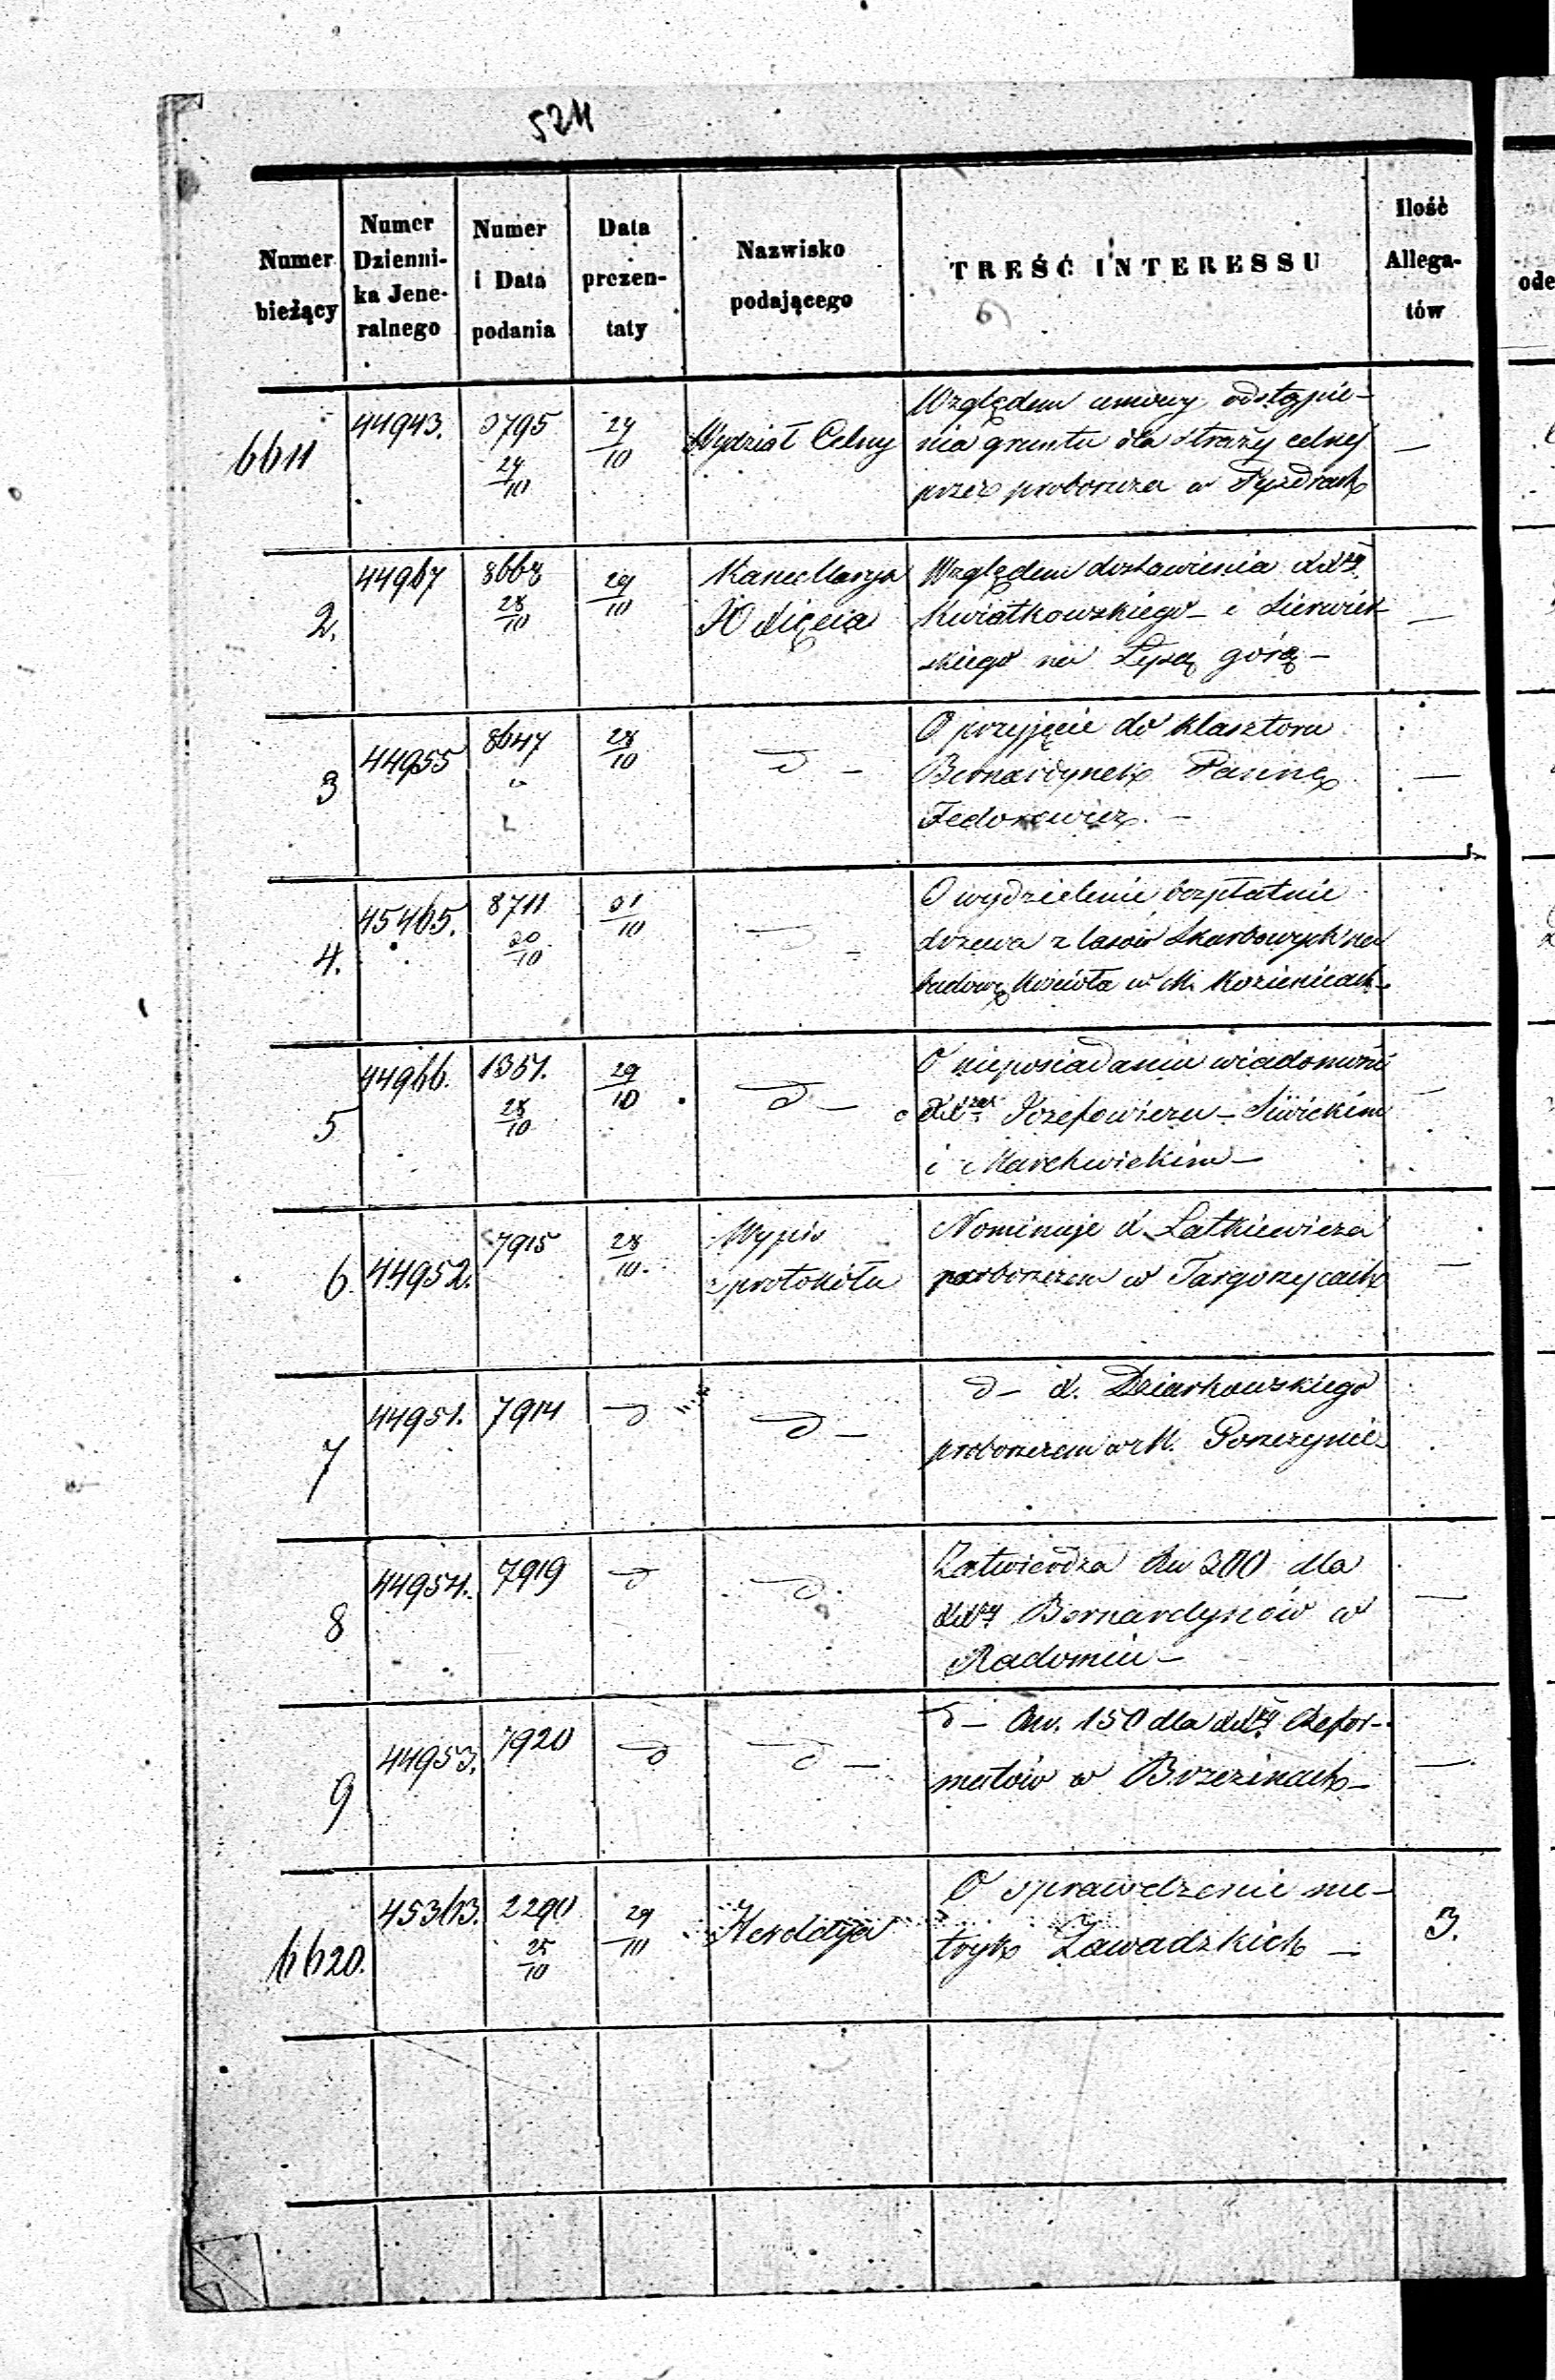 5211
Numer bieżący
Numer Dzienni-ka Jene-ralnego
Numer i Data podania
Data prezen-taty
Nazwisko podającego
TREŚĆ INTERESSU
Ilość Allega-tów
ode
6611
44943.
3795 24/10
24/10
Wydział Celny
Względem umowy odstąpie-
nia gruntu dla straży celnej
przez proboszcza w Pyzdrach
—
2.
44967
8668 28/10
29/10
Kancellarya
JO Xięcia
Względem dostawienia XX
Kwiatkowskiego i
skiego na Łysą górę —
—
3
44955
8647
28/10
d —
O przyjęcie do klasztoru
Bernardynek Pannę
Fedorowicz. —
—
4.
45465.
8711 30/10
31/10
O wydzielenie bezpłatnie
drzewa z lasów Skarbowych na
budowę Kościoła w M. Kozienicach
5
44966.
1351. 28/10
29/10
d —
O nieposiadaniu wiadomości
o XX Józefowiczu — Siwickim
i Marchwickim —
—
6.
44952.
7915
28/10.
Wypis
z protokółu
Nominuje X. Latkiewicza
proboszczem w Targoszycach
—
7
44951.
7914
d
d —
d — X. Dziarkowskiego
proboszczem w M. Goszczynie
8
44954.
7919
d
d
Zatwierdza Rsr 300 dla
XX Bernardynów w
Radomiu —
—
9
44953.
7920
d
d —
d — Rsr. 150 dla XX Refor-
matów w Brzezinach —
—
6620.
45363.
2290 25/10
29/10
Heroldya
O sprawdzenie me-
tryk Zawadzkich —
3.